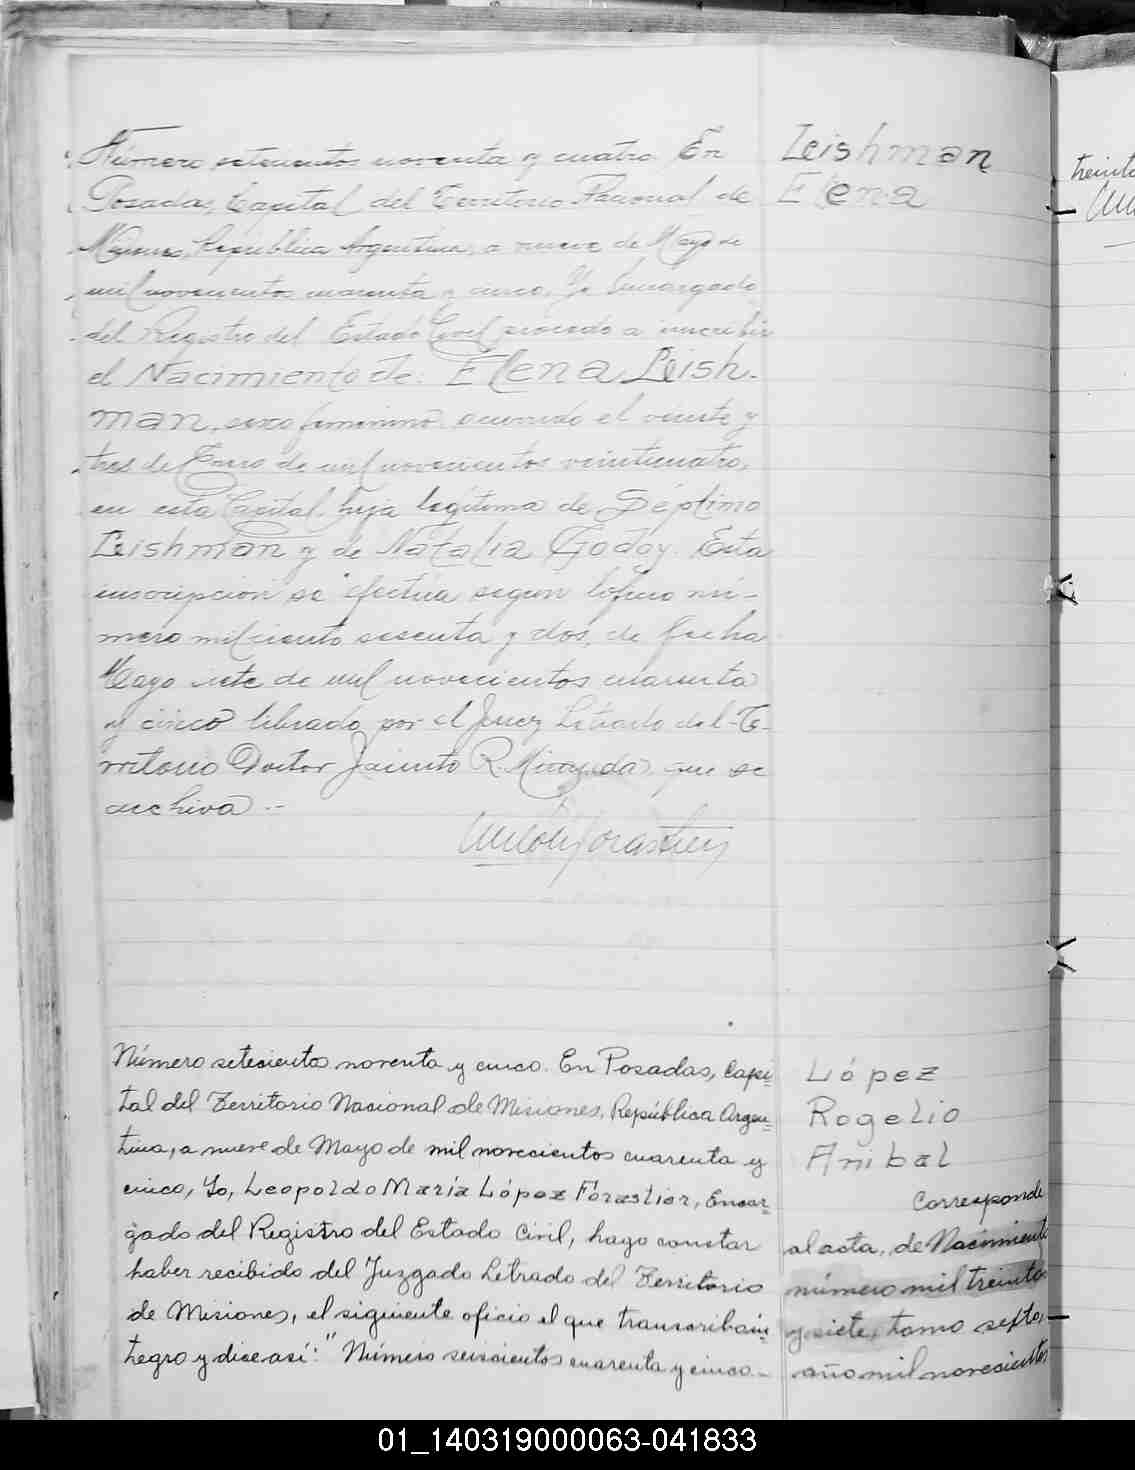 Número setecientos noventa y cuatro. En
Posadas, Capital del Territorio Nacional de
Misiones, República Argentina, a nueve de Mayo de
mil novecientos cuarenta y cinco, Yo Encargado
del Registro del Estado Civil procedo a inscribir
el Nacimiento de: Elena Leish-
man, sexo femenino ocurrido el veinte y
tres de Enero de mil novecientos veinticuatro,
en esta Capital, hija legítima de Séptimo
Leishman y de Natalia Godoy. Esta
inscripción se efectúa según Oficio nú-
mero mil ciento sesenta y dos, de fecha
Mayo siete de mil novecientos cuarenta
y cinco librado por el Juez Letrado del Te-
rritorio Doctor Jacinto R. Miranda que se
archiva.-
Leishman
Elena
Número setecientos noventa y cinco. En Posadas, Capi=
tal del Territorio Nacional de Misiones, República Argen=
tina, a nueve de Mayo de mil novecientos cuarenta y
cinco, Yo, Leopoldo María López Forastier, Encar=
gado del Registro del Estado Civil, hago constar
haber recibido del Juzgado Letrado del Territorio
de Misiones, el siguiente oficio el que transcribo ín=
tegro y dice así: "Número seiscientos cuarenta y cinco.-
López
Rogelio
Anibal
Corresponde
al acta, de Nacimiento
número mil treinta
y siete, tomo sexto,
año mil novecientos
treinta
01_140319000063-041833